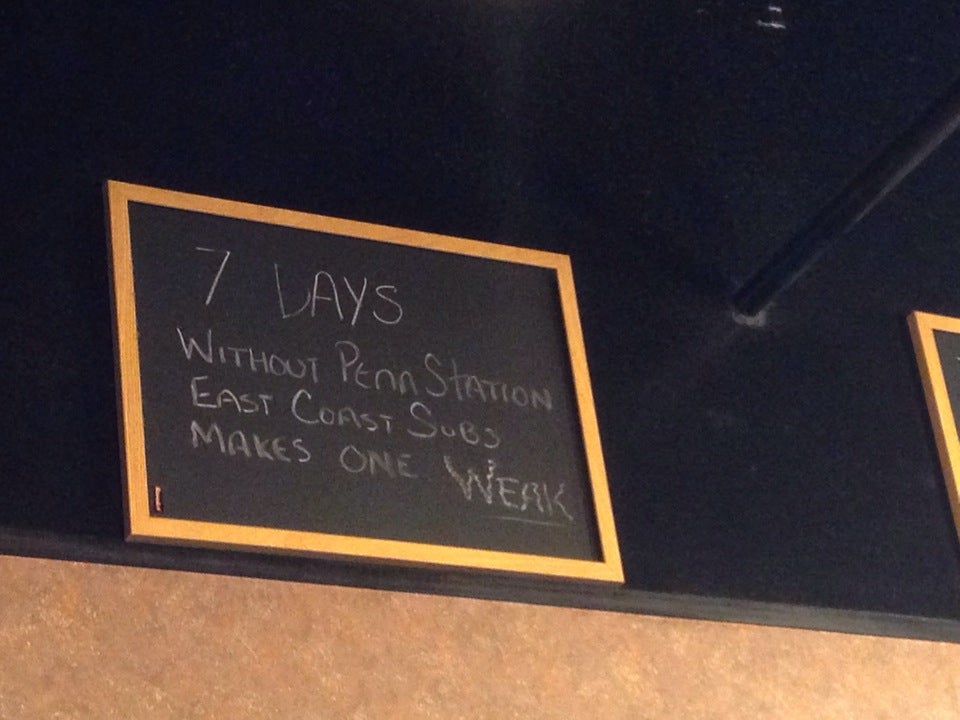 7 DAYS
WITHOUT PENN STATION
EAST COAST SUBS
MAKES ONE WEAK